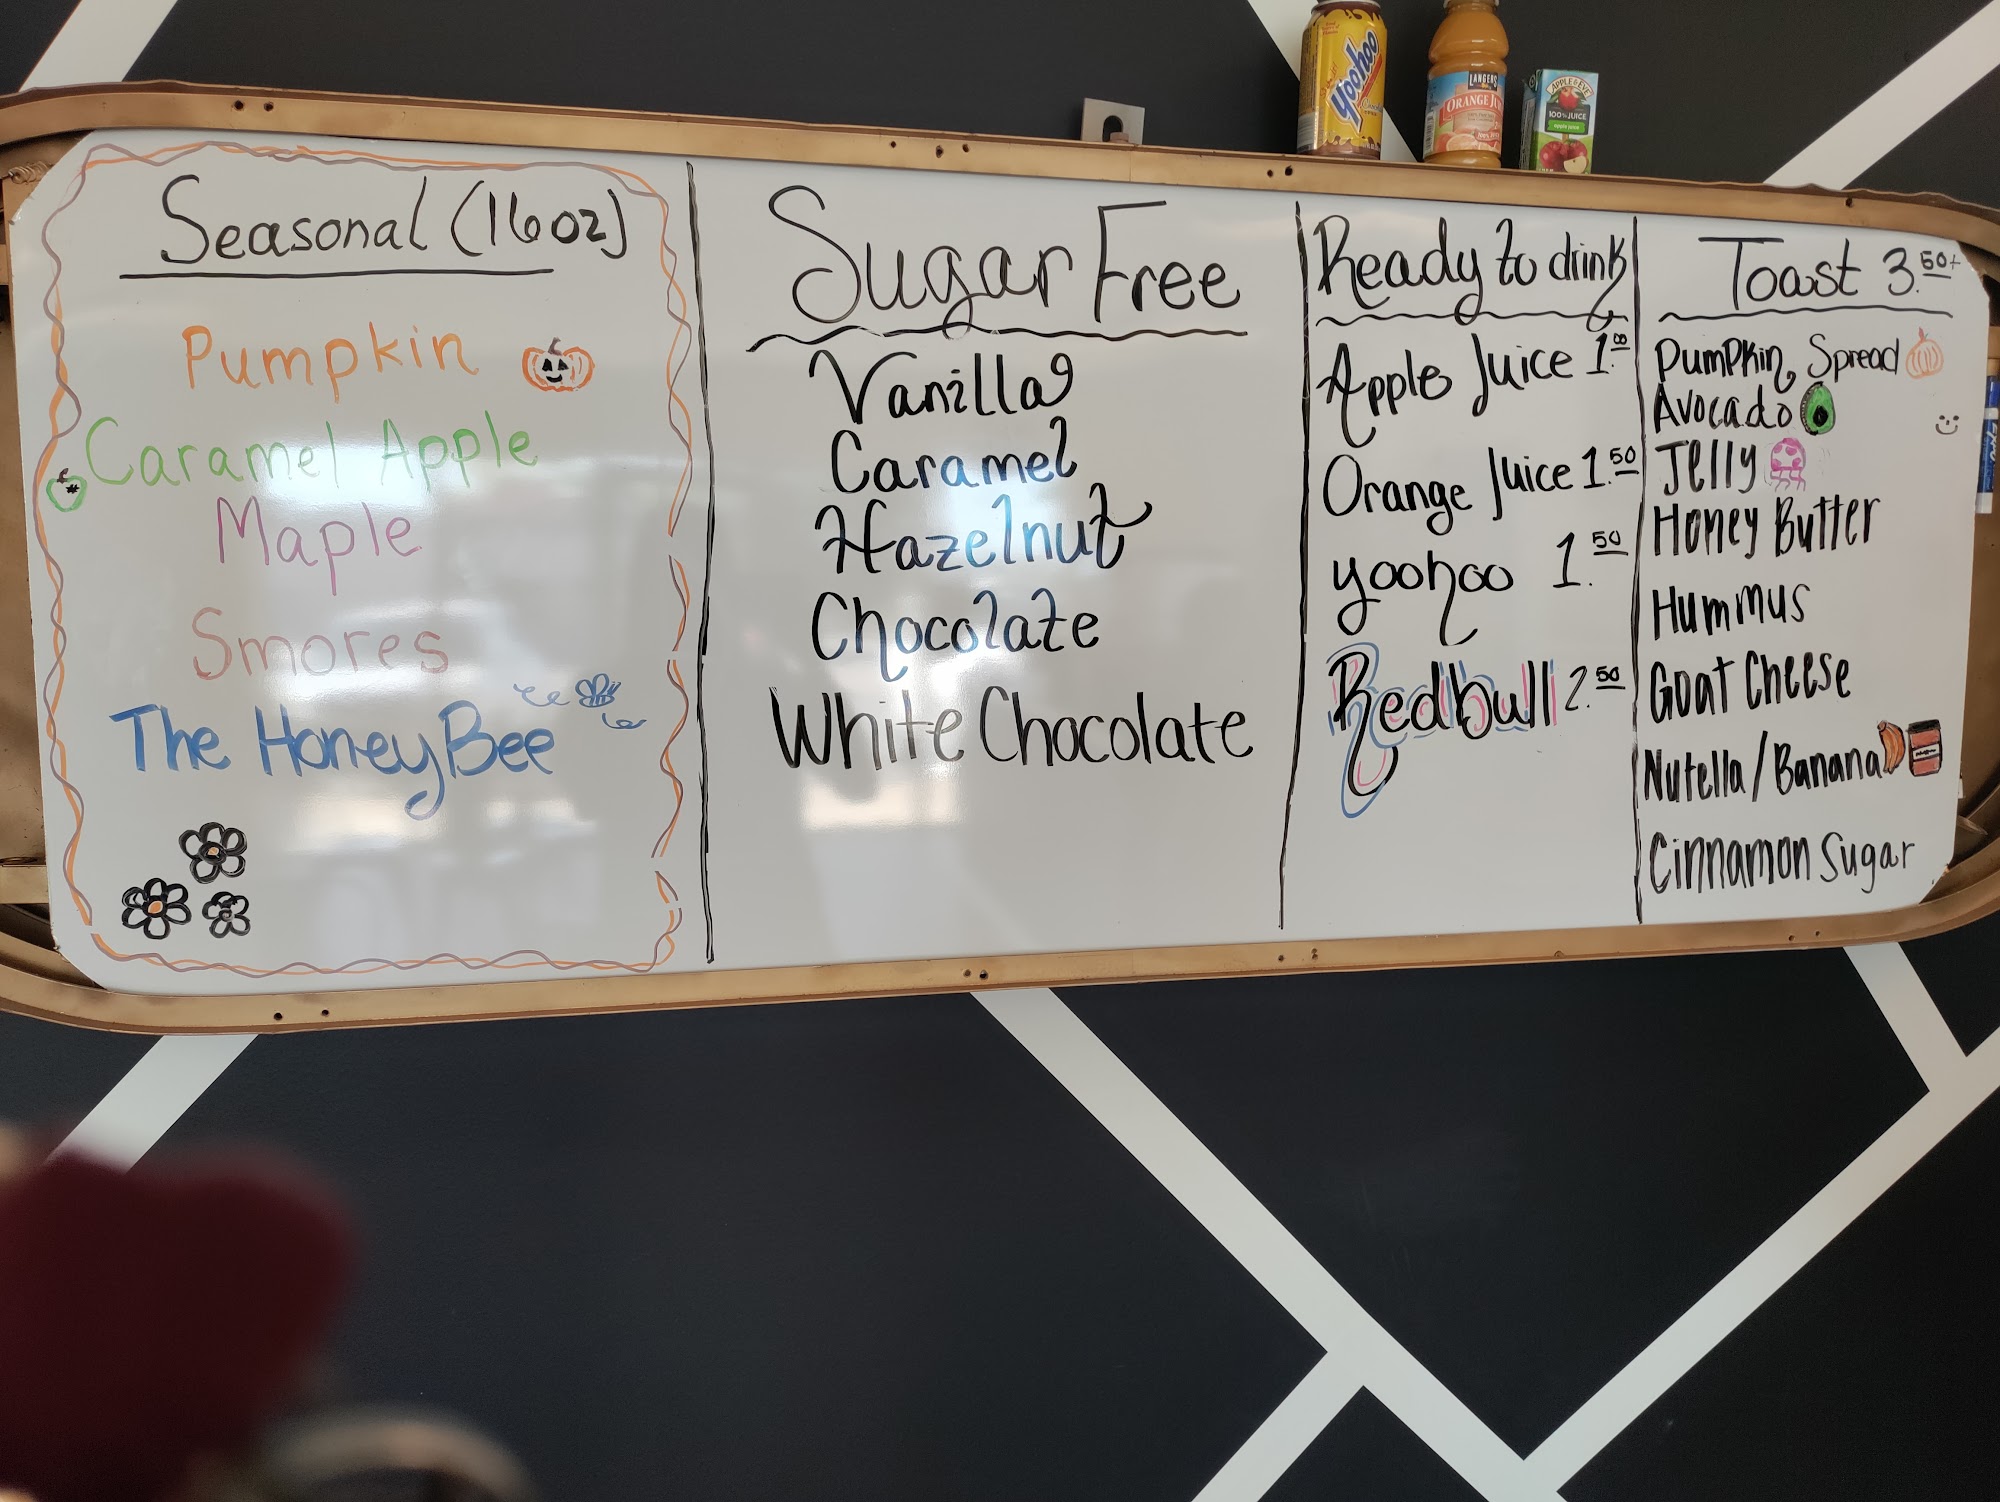 Yoohoo
LANGERS
ORANGE JUI
100% JUICE
APPLE & EVE
100% JUICE
apple juice
Seasonal (16oz)
Pumpkin
Caramel Apple
Maple
Smores
The Honey Bee
Sugar Free
Vanilla
Caramel
Hazelnut
Chocolate
White Chocolate
Ready to drink
Apple Juice 1.00
Orange Juice 1.50
yoohoo 1.50
Redbull 2.50
Toast 3.50+
Pumpkin Spread
Avocado
Jelly
Honey Butter
Hummus
Goat Cheese
Nutella/Banana
Cinnamon Sugar